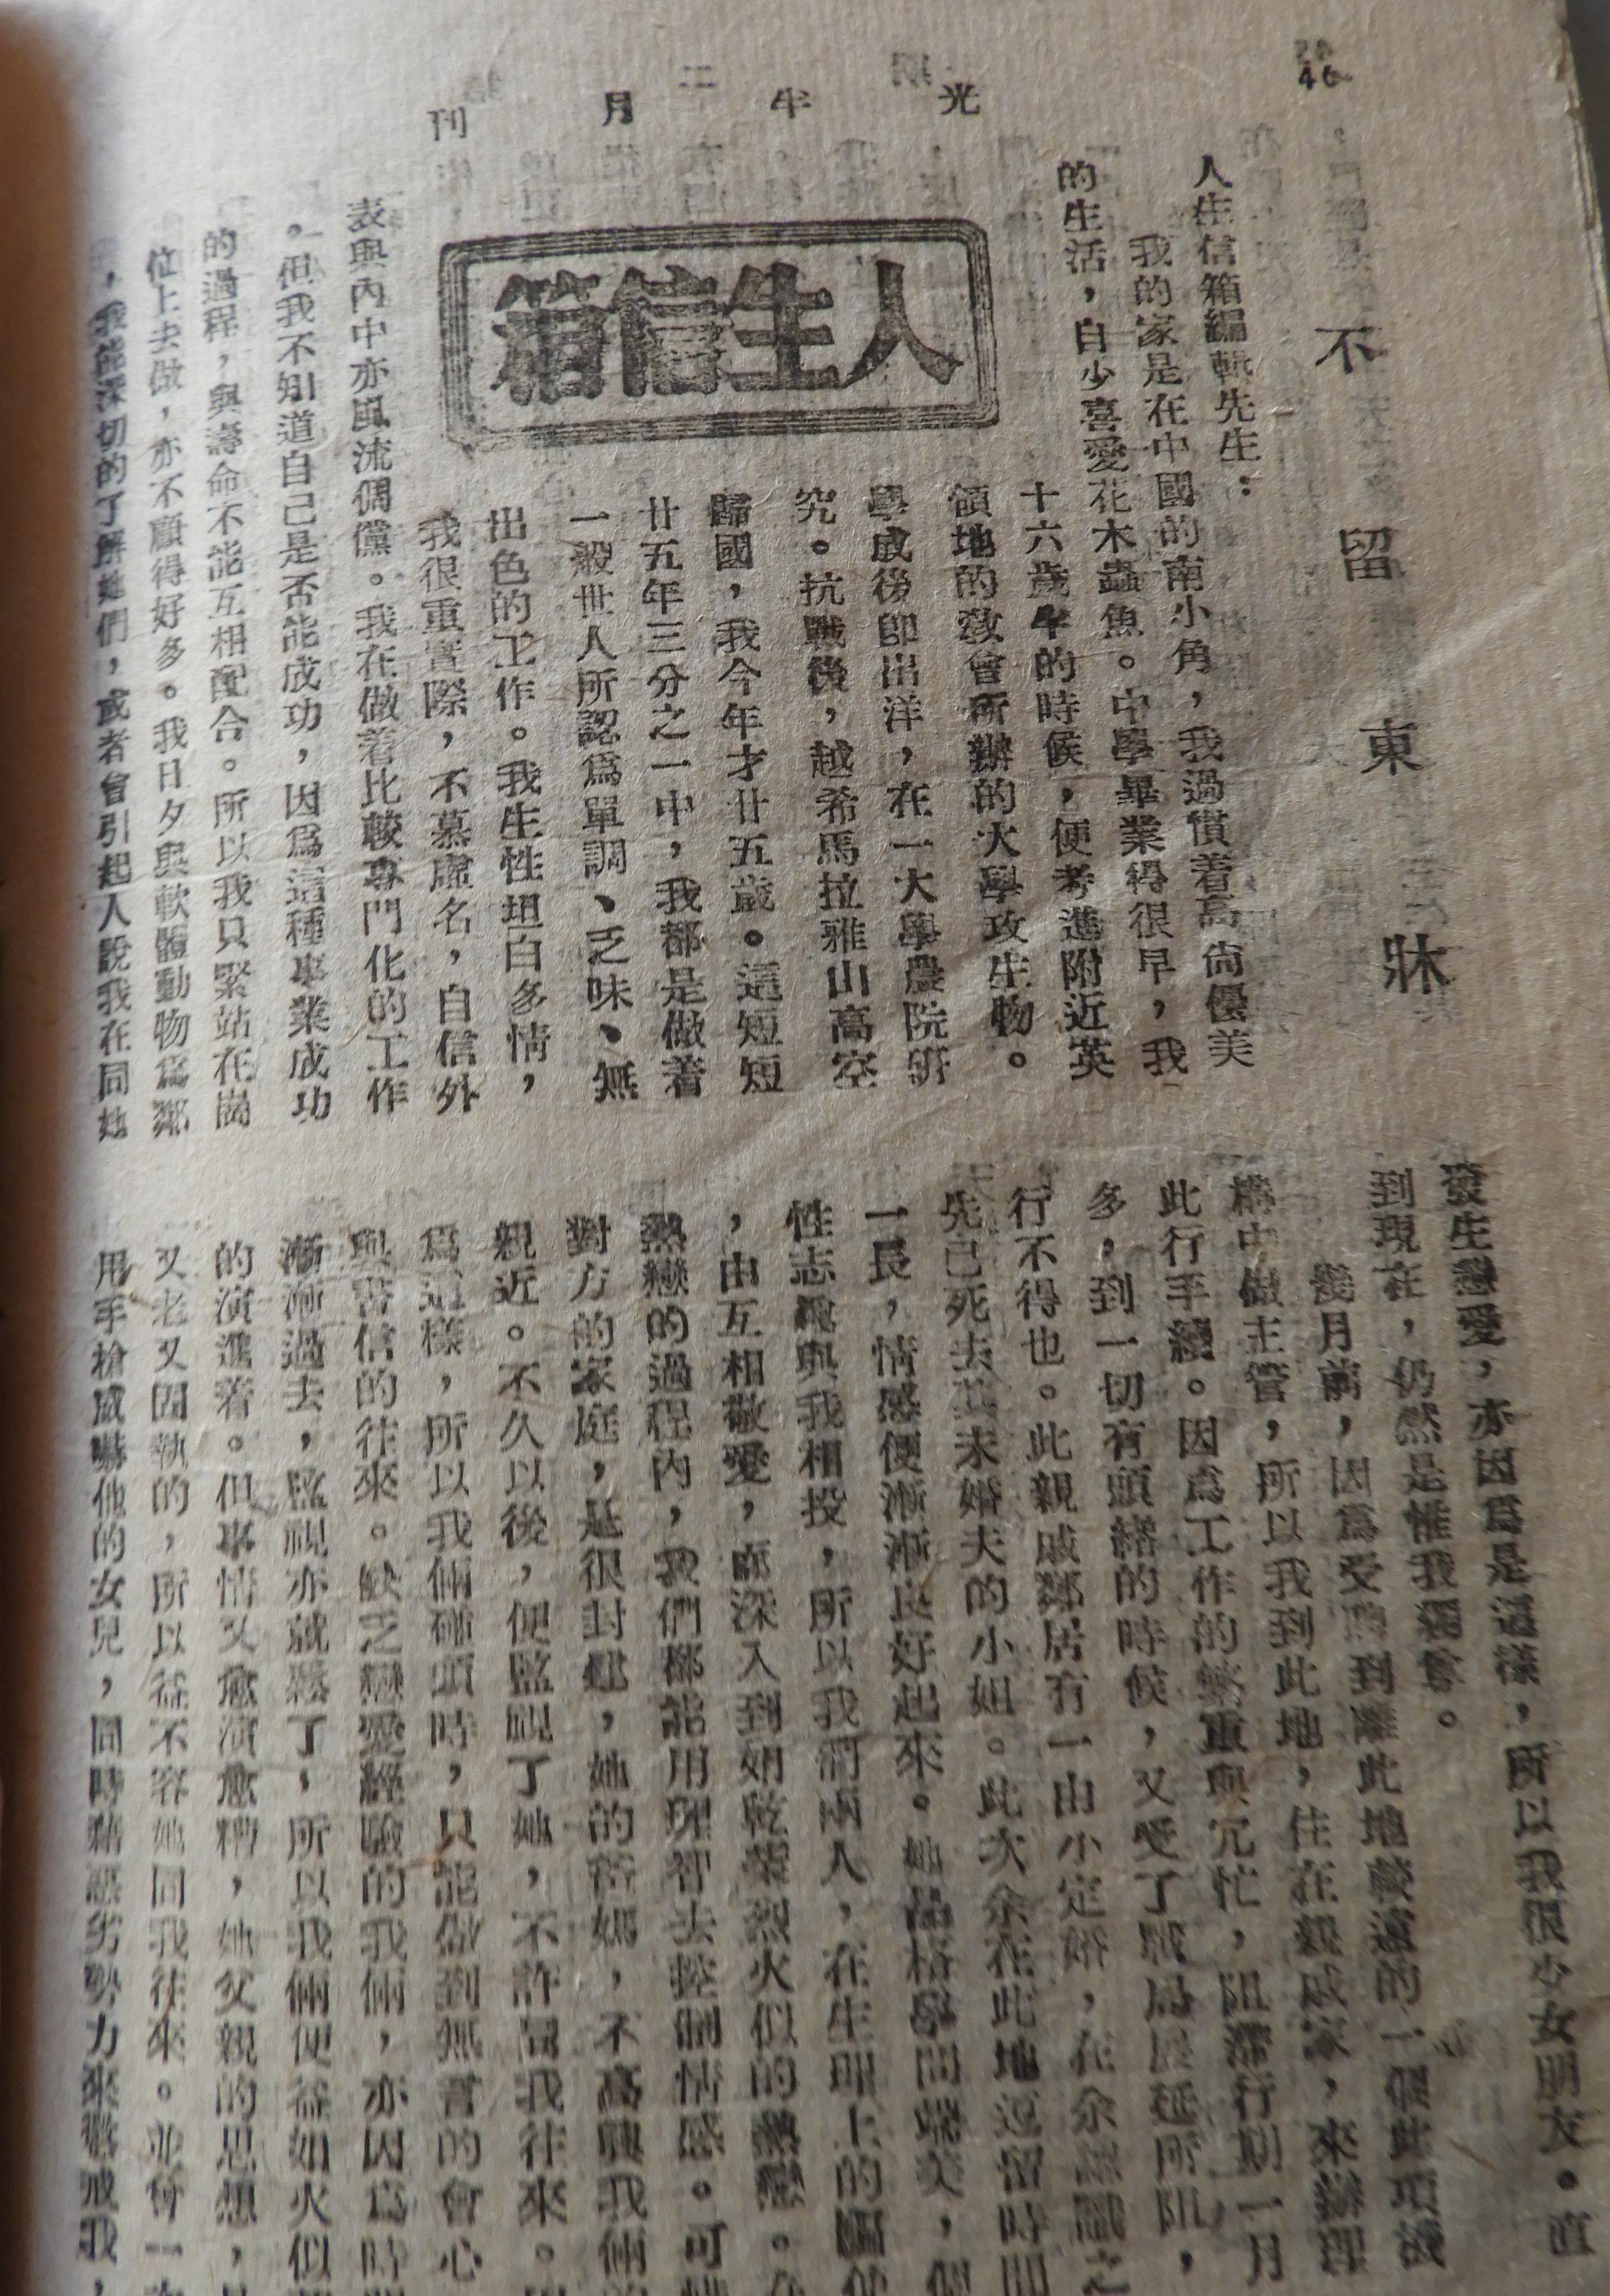 46
光半月刊
不留東牀
人生信箱
人生信箱編輯先生：
我的家是在中國的南小角，我過慣着高尚優美
的生活，自少喜愛花木蟲魚。中學畢業得很早，我
十六歲半的時候，便考進附近英
領地的教會所辦的大學攻生物。
學成後即出洋，在一大學農院研
究。抗戰後，越希馬拉雅山高空
歸國，我今年才廿五歲。這短短
廿五年三分之一中，我都是做着
一般世人所認爲單調、乏味、無
出色的工作。我生性坦白多情，
我很重實際，不慕虛名，自信外
表與內中亦風流倜儻。我在做着比較專門化的工作
，但我不知道自己是否能成功，因爲這種事業成功
的過程，與壽命不能互相配合。所以我只緊站在崗
位上去做，亦不顧得好多。我日夕與軟體動物爲鄰
，我能深切的了解她們，或者會引起人說我在同她
發生戀愛，亦因爲是這樣，所以我很少女朋友。直
到現在，仍然是惟我獨尊。
幾月前，因爲受聘到離此地較遠的一個此項機
構中做主管，所以我到此地，住在親戚家，來辦理
此行手續。因爲工作的繁重與冗忙，阻滯行期一月
多，到一切有頭緒的時候，又受了戰局展延所阻，
行不得也。此親戚鄰居有一由小定婚，在余認識之
先已死去其未婚夫的小姐。此次余在此地逗留時間
一長，情感便漸漸良好起來。她品格學問端美，個
性志趣與我相投，所以我們兩人，在生理上的驅使
，由互相敬愛，而深入到如乾柴烈火似的熱戀。在
熱戀的過程內，我們都能用理智去控制情感。可
對方的家庭，是很封建，她的爸媽，不高興我倆
親近。不久以後，便監視了她，不許同我往來。
爲這樣，所以我倆碰頭時，只能做到無言的會心
與書信的往來。缺乏戀愛經驗的我倆，亦因爲時
漸漸過去，監視亦就鬆了，所以我倆便益如火似
的演進着。但事情又愈演愈糟，她父親的思想，
又老又固執的，所以益不容她同我往來。並曾一
用手槍威嚇他的女兒，同時藉惡劣勢力來警戒我，